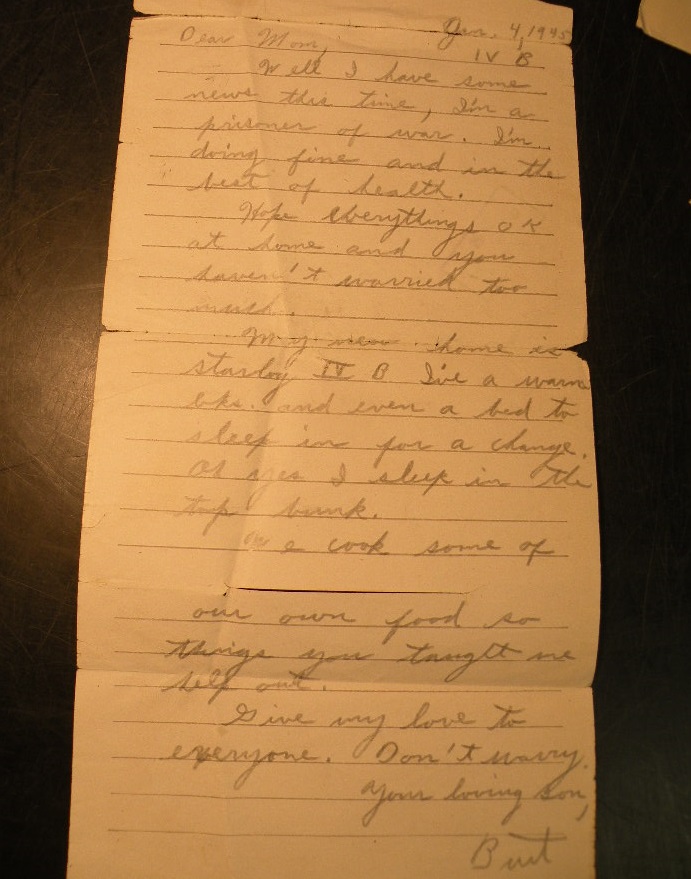 Jan. 4, 1945
IV B
Dear Mom,
Well I have some
news this time, I'm a
prisoner of war. I'm
doing fine and in the
best of health.
Hope everythings OK
at home and you
haven't worried too
much.
My new home is
starlog IV B I've a warm
bks. and even a bed to
sleep in for a change.
Oh yes I sleep in the
top bunk.
We cook some of
our own food so
things you taught me
help out.
Give my love to
everyone. Don't worry.
Your loving son,
Burt